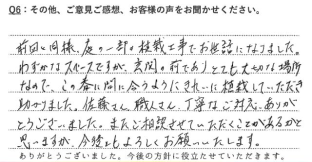 Q6：その他、ご意見ご感想、お客様の声をお聞かせください。
前回同様、庭の一部の植栽工事でお世話になりました。
わずかなスペースですが、玄関の前でありとても大切な場所
なので、この春に間に合うようにきれいに植栽していただき
助かりました。佐藤さん、職人さん、丁寧なご対応、ありが
とうございました。またご相談させていただくことがあるかと
思いますが、今後もよろしくお願いいたします。
ありがとうございました。今後の方針に役立たせていただきます。